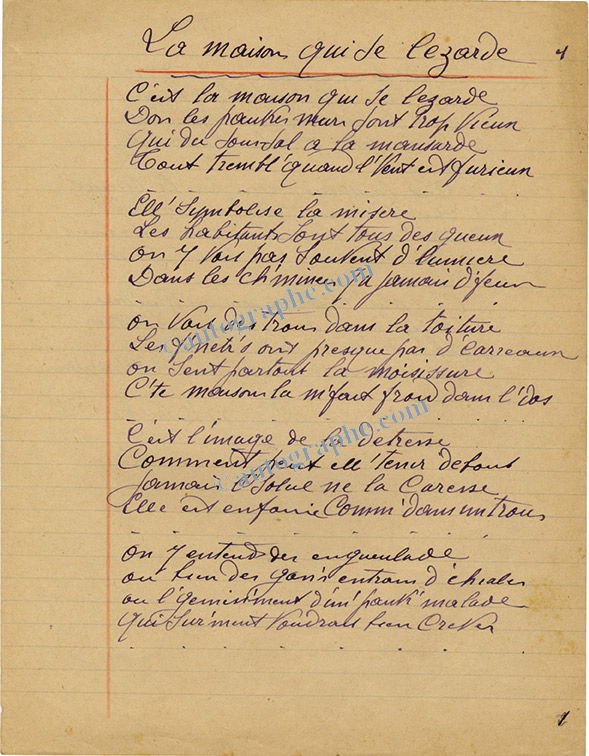 La maison qui se lezarde
1
C'est la maison qui se lezarde
Don les pauvres murs sont trop vieux
Qui du sous sol a la mansarde
Tout trembl' quand l'vent est furieux
Ell' symbolise la misere
Les habitants sont tous des gueux
on y vois pas souvent d'lumiere
Dans les ch'minees y a jamais d'feux
on vois des trous dans la toiture
Les f'netr's ont presque pas d'carreaux
on sent partout la moisissure
C'te maison la m'fait froid dans l'dos
C'est l'image de la detresse
Comment peut ell' tenir debout
Jamais l'soleil ne la caresse
Elle est enfouie comm' dans un trou
on y entend des engueulade
ou bien des goss's entrain d'chialer
ou l'gemiss'ment d'un' pauv' malade
Qui surment voudrais bien crever
1
©autographe.com
©autographe.com